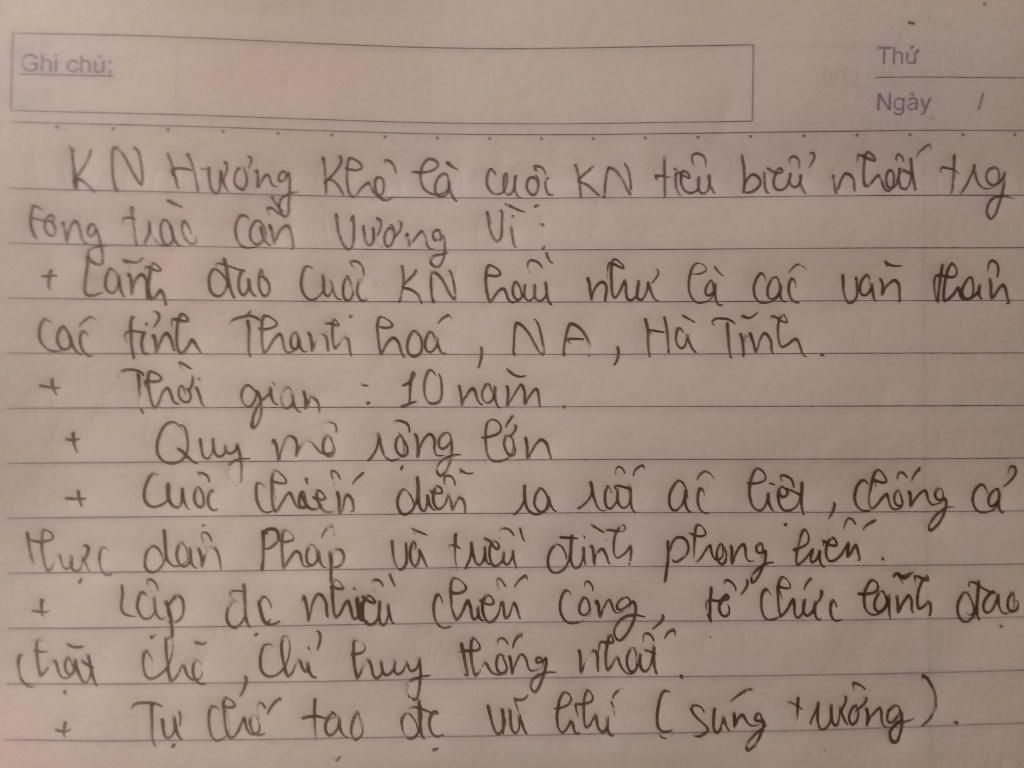 Ghi chú:
Thứ
Ngày /
KN Hương Khê là cuộc KN tiêu biểu nhất trg
fong trào Cần Vương vì:
+ Lãnh đạo cuộc KN hầu như là các văn thân
các tỉnh Thanh hoá, NA, Hà Tĩnh.
+ Thời gian: 10 năm.
+ Quy mô rộng lớn
+ Cuộc chiến diễn ra rất ác liệt, chống cả
thực dân Pháp và triều đình phong kiến.
+ Lập đc nhiều chiến công, tổ chức lãnh đạo
chặt chẽ, chỉ huy thống nhất.
+ Tự chế tạo đc vũ khí (súng trường).